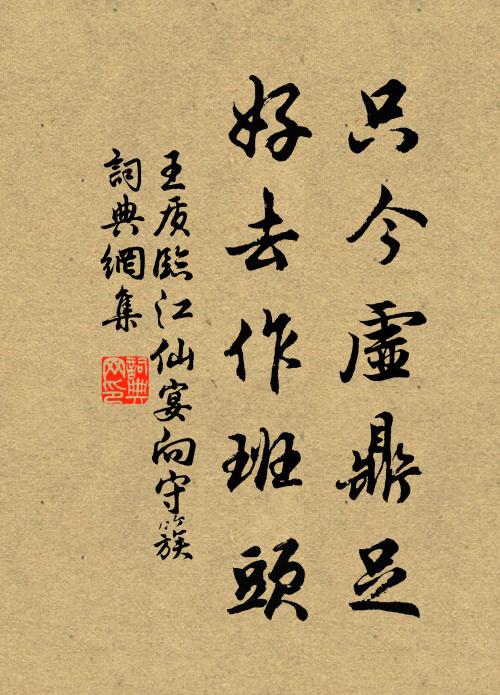 只今虛鼎足
好去作班頭
王质臨江仙宴向守簇
詞典網集
詞典網印